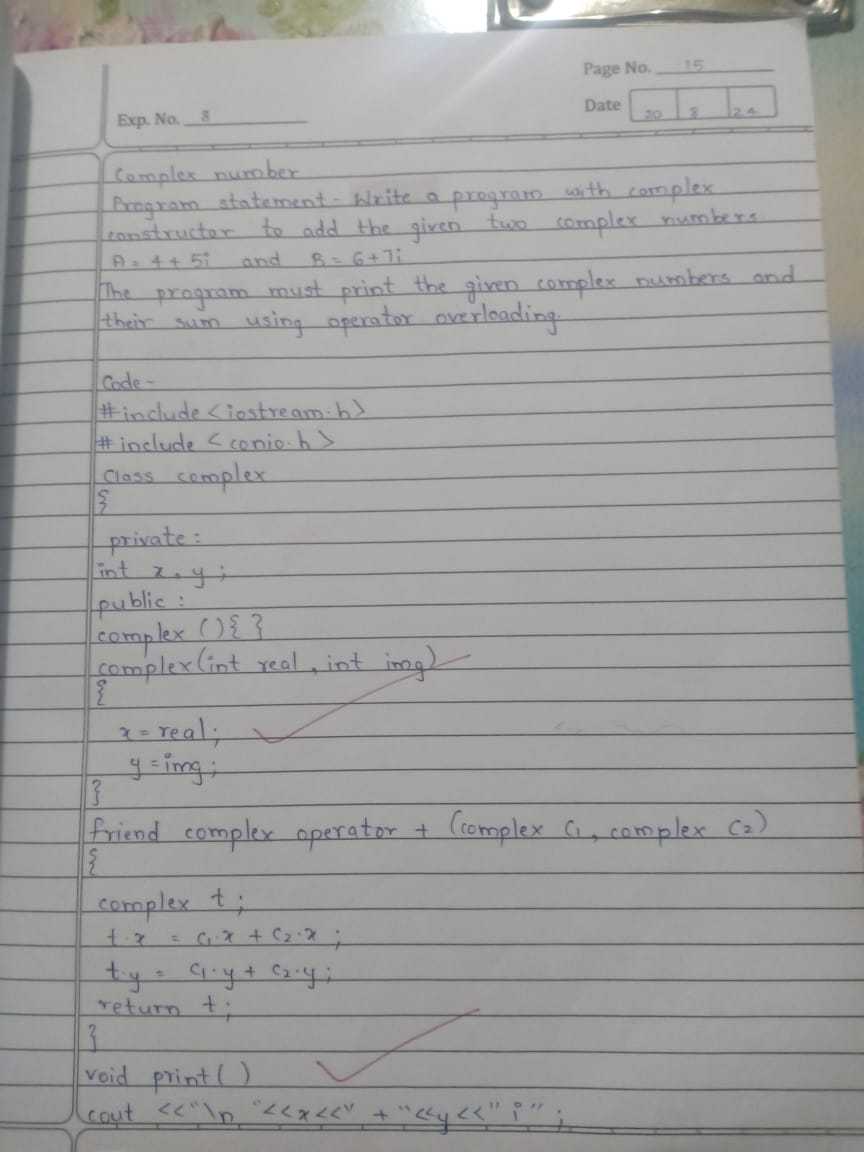 Page No. 15
Exp. No. 8
Date 20 8 24
Complex number
Program statement - Write a program with complex
constructor to add the given two complex numbers
A = 4 + 5i and B = 6 + 7i
The program must print the given complex numbers and
their sum using operator overloading.
Code -
#include <iostream.h>
#include <conio.h>
Class complex
{
private :
int x, y ;
public :
complex () { }
complex (int real , int img)
{
x = real ;
y = img ;
}
friend complex operator + (complex C1, complex C2)
{
complex t ;
t.x = C1.x + C2.x ;
t.y = C1.y + C2.y ;
return t ;
}
void print ( )
cout <<"\n "<<x<<" + "<<y<<" i" ;